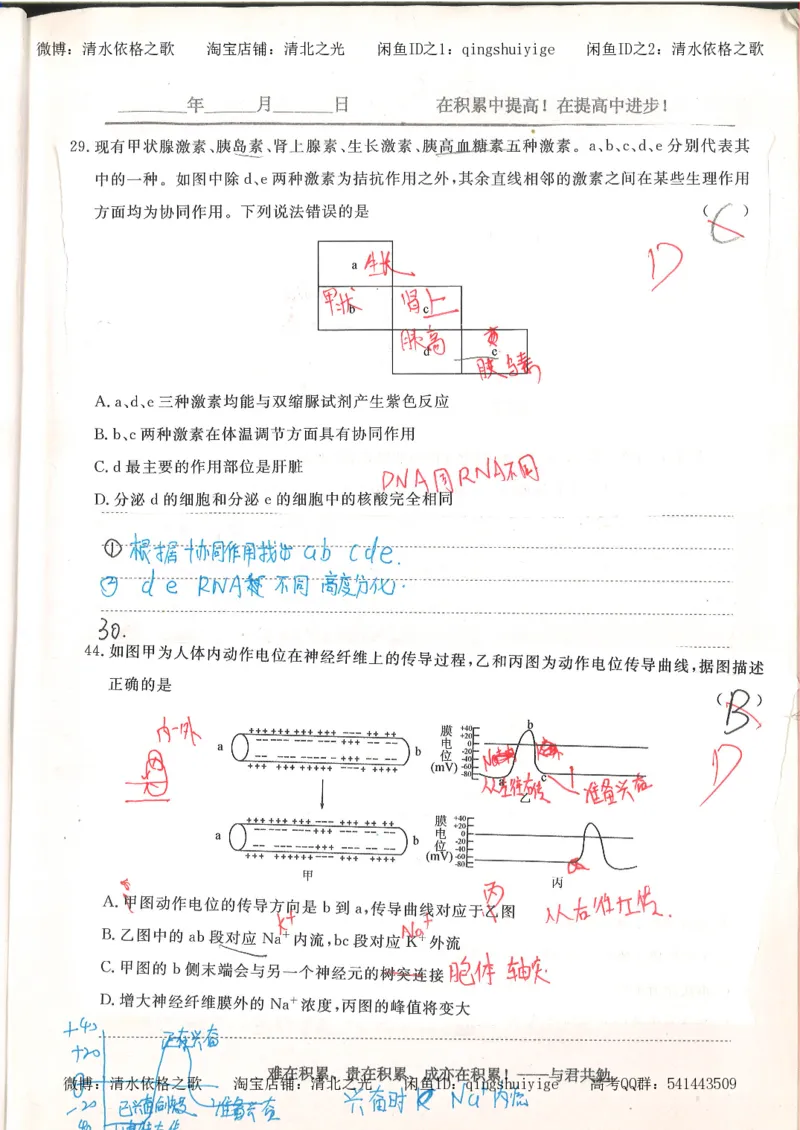 微博：清水依格之歌 淘宝店铺：清北之光 闲鱼ID之1：qingshuiyige 闲鱼ID之2：清水依格之歌
年 月 日 在积累中提高！在提高中进步！
29. 现有甲状腺激素、胰岛素、肾上腺素、生长激素、胰高血糖素五种激素。a、b、c、d、e 分别代表其
中的一种。如图中除 d、e 两种激素为拮抗作用之外，其余直线相邻的激素之间在某些生理作用
方面均为协同作用。下列说法错误的是 （ C ）
D
a 生长
甲状 b 肾上 c
胰高 d e
胰岛素
A. a、d、e 三种激素均能与双缩脲试剂产生紫色反应
B. b、c 两种激素在体温调节方面具有协同作用
C. d 最主要的作用部位是肝脏
DNA同RNA不同
D. 分泌 d 的细胞和分泌 e 的细胞中的核酸完全相同
① 根据协同作用找出 ab cde.
② d e RNA 不同 高度分化.
30.
44. 如图甲为人体内动作电位在神经纤维上的传导过程，乙和丙图为动作电位传导曲线，据图描述
正确的是 （ B ）
D
内-外
a b
膜电位(mV) +40 +20 0 -20 -40 -60 -80
a b c
从左往右传 准备兴奋
乙
a b
甲
膜电位(mV) +40 +20 0 -20 -40 -60 -80
丙
A. 甲图动作电位的传导方向是 b 到 a，传导曲线对应于乙图
丙 从右往左传.
K+ Na+
B. 乙图中的 ab 段对应 Na+ 内流，bc 段对应 K+ 外流
C. 甲图的 b 侧末端会与另一个神经元的树突连接 胞体 轴突
D. 增大神经纤维膜外的 Na+ 浓度，丙图的峰值将变大
+40
+20
0
-20
正在兴奋
准备兴奋
难在积累，贵在积累，成亦在积累！——与君共勉
微博：清水依格之歌 淘宝店铺：清北之光 闲鱼ID：qingshuiyige 高考QQ群：541443509
兴奋时 Na+内流